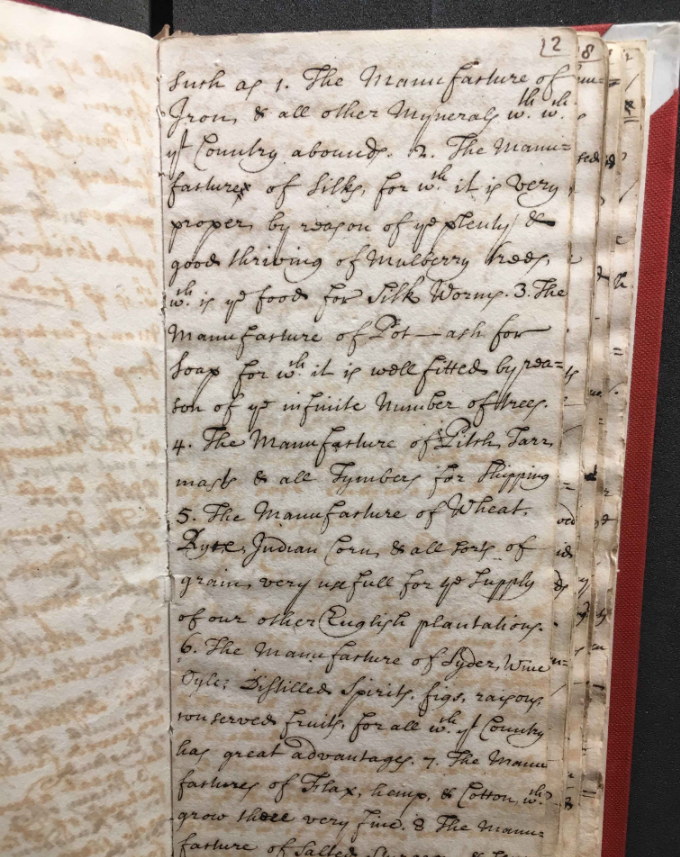 12
Such as 1. The Manufacture of
Iron, & all other Mynerals wth. wch.
yt Country abounds. 2. The Manu=
factures of Silks, for wch. it is very
proper, by reason of ye plenty, &
good thriving of Mulberry trees,
wch. is ye food for Silk Worms. 3. The
Manufacture of Pot-ash for
Soap for wch. it is well fitted by rea=
son of ye infinite Number of trees.
4. The Manufacture of Pitch, Tarr,
masts & all Tymbers for Shipping
5. The Manufacture of Wheat,
Rye, Indian Corn, & all sorts of
grain, very usefull for ye Supply
of our other English plantations.
6. The Manufacture of Syder, Wine
Oyle, Distilled Spirits, figs, raisons,
conserved fruits, for all wch. yt Country
has great advantages. 7. The Manu
factures of Flax, hemp, & Cotton, wch.
grow there very fine. 8 The Manu=
facture of Salted Sturgeon, &